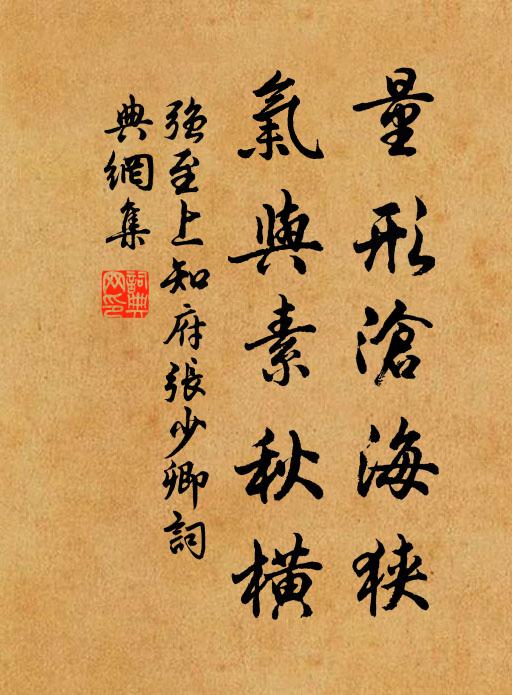 量形滄海狹
氣與素秋橫
強至上知府張少卿詞
典網集
詞典網印